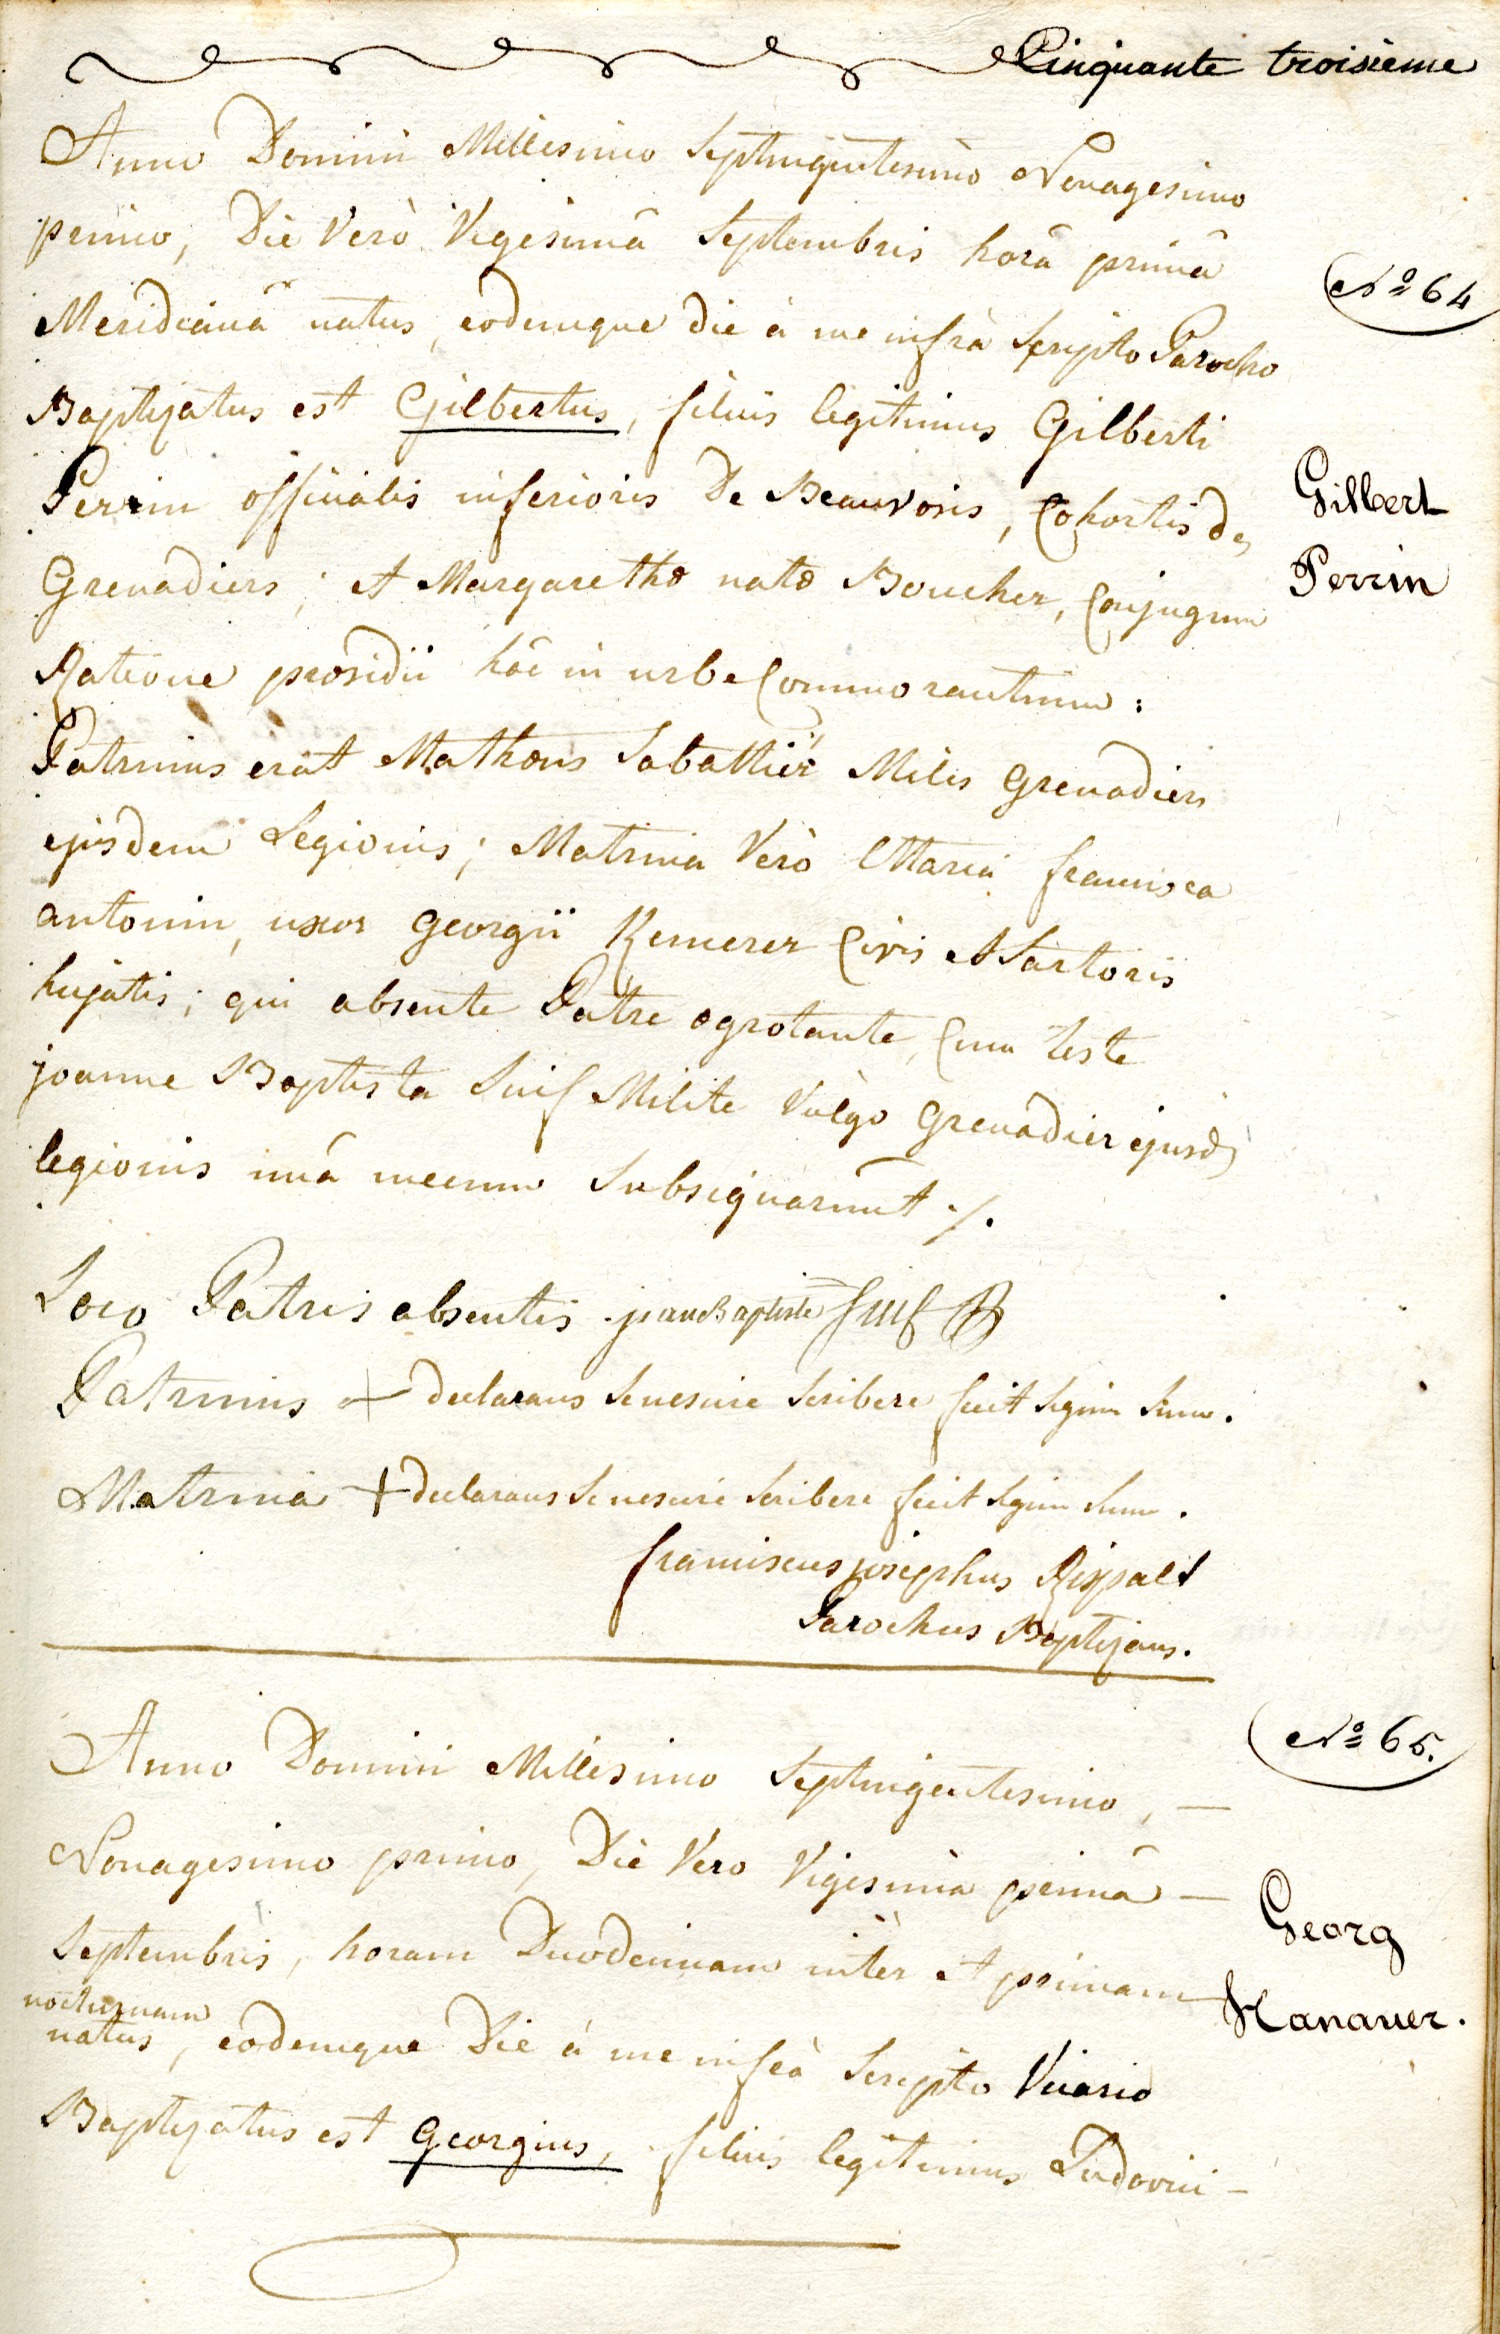 Cinquante troisieme
Anno Domini Millesimo Septingentesimo Nonagesimo
primo, Die Verò Vigesimâ Septembris horâ primâ
Nº 64
Meridianâ natus, eodemque die à me infrà Scripto Parocho
Baptizatus est Gilbertus, filius legitimus Gilberti
Perrin officialis inferioris De Beauvosis, Cohortis des
Gilbert
Perrin
Grenadiers; et Margarethæ natæ Boucher, Conjugum
Ratione præsidii hâc in urbe Commorantium:
Patrinus erat Mathæus Sabattier Miles Grenadiers
ejusdem Legionis; Matrina Verò Maria francisca
antonin, uxor Georgii Kemerer Civis et Sartoris
hujatis; qui absente Patre ægrotante, Cum Teste
joanne Baptista Suif Milite Vulgo Grenadier ejusd
legionis unâ mecum Subsignarunt ./.
Loco Patris absentis jeanBaptiste Suif
Patrinus + declarans Se nescire Scribere fecit Signum Suum.
Matrina + declarans Se nescire Scribere fecit Signum Suum.
franciscus josephus Rispalt
Parochus Baptizans.
Nº 65.
Anno Domini Millesimo Septingentesimo, —
Nonagesimo primo, Die Vero Vigesimâ primâ —
Septembris, horam Duodecimam inter et primam
Georg
Hanauer.
nocturnam
natus, eodemque Die á me infrà Scripto Vicario
Baptizatus est Georgius, filius legitimus Ludovici —